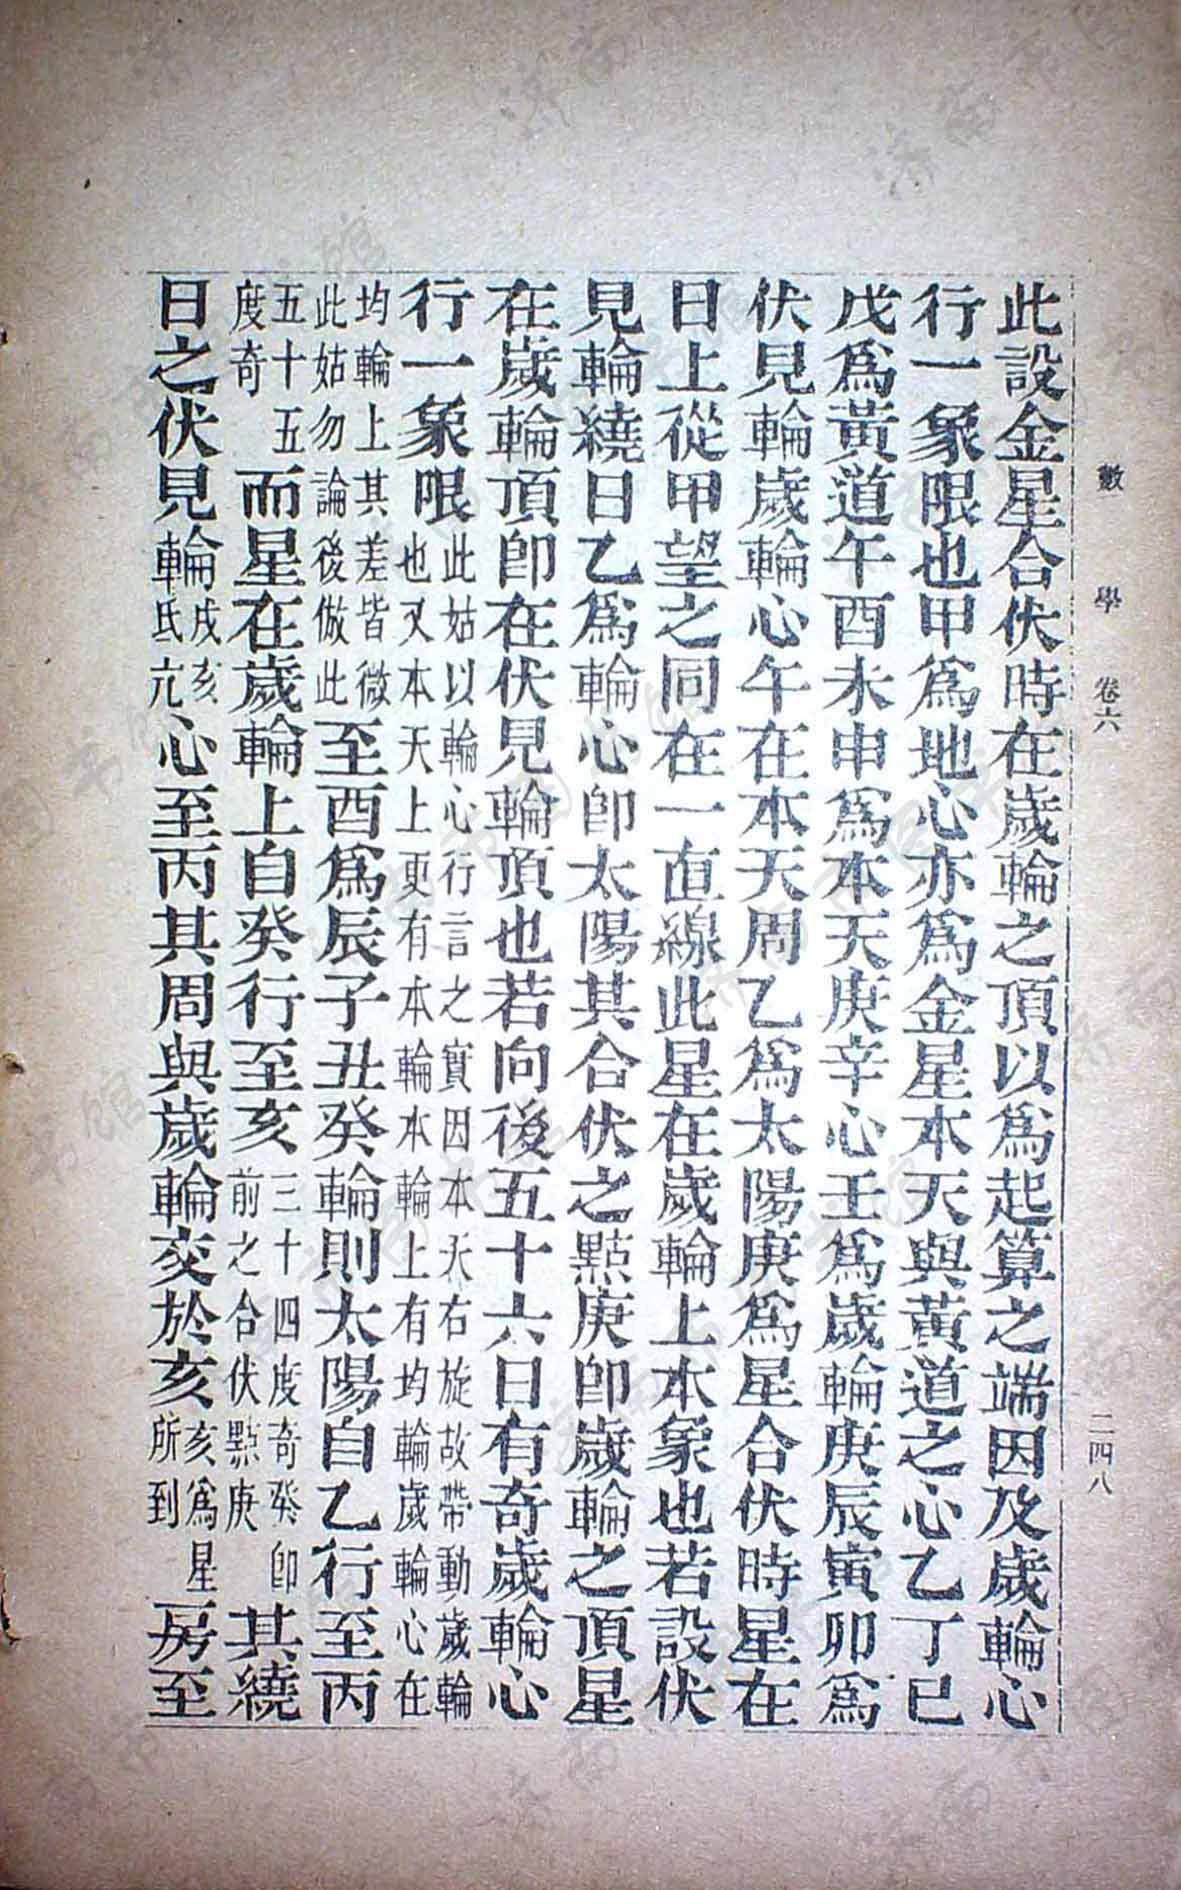 數學 卷六 二四八
此設金星合伏時在歲輪之頂以爲起算之端因及歲輪心
行一象限也甲爲地心亦爲金星本天與黃道之心乙丁已
戊爲黃道午酉未申爲本天庚辛心壬爲歲輪庚辰寅卯爲
伏見輪歲輪心午在本天周乙爲太陽庚爲星合伏時星在
日上從甲望之同在一直線此星在歲輪上本象也若設伏
見輪繞日乙爲輪心卽太陽其合伏之點庚卽歲輪之頂星
在歲輪頂卽在伏見輪頂也若向後五十六日有奇歲輪心
行一象限此姑以輪心行言之實因本天右旋故帶動歲輪也又本天上更有本輪本輪上有均輪歲輪心在
均輪上其差皆微此姑勿論後倣此至酉爲辰子丑癸輪則太陽自乙行至丙
五十五度奇而星在歲輪上自癸行至亥三十四度奇癸卽前之合伏點庚其繞
日之伏見輪戌亥氐亢心至丙其周與歲輪交於亥亥爲星所到房至
济南市图书馆